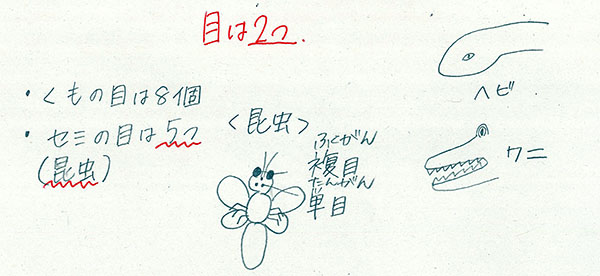 目は2つ
・くもの目は8個
・セミの目は5つ
(昆虫)
<昆虫>
ふくがん
複目
たんがん
単目
ヘビ
ワニ